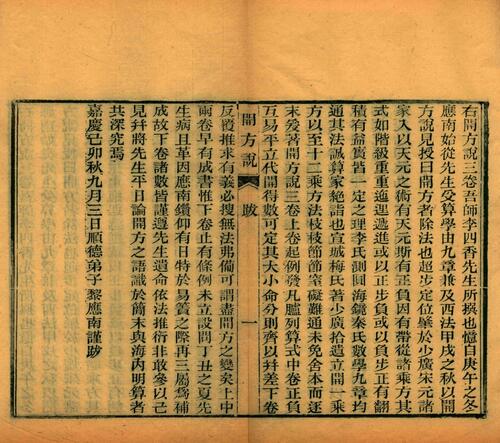 右開方說三卷吾師李四香先生所撰也憶自庚午之冬
應南始從先生受算學由九章兼及西法甲戌之秋以開
方說見授曰開方者除法也超步定位肇於少廣宋元諸
家入以天元之術有天元斯有正負因有帶從諸乘方其
式如階級重重迤邐遞進或以負步正或以正步負有翻
積有益實皆一定之理李氏測圓海鏡秦氏數學九章均
通其法誠算家絕詣也宣城梅氏著少廣拾遺立開一乘
方以至十二乘方法枝枝節節窒礙難通未免舍本而逐
末爰著開方說三卷上卷起例發凡臚列算式中卷正負
互易平立代開得數可定其大小命分則齊以幷差下卷
開方說
跋
一
反覆推求有義必搜無法弗備可謂盡開方之變矣上中
兩卷早有成書惟下卷止有條例未立設問丁丑之夏先
生病且革因應南鑽仰有日特於易簀之際再三屬爲補
成故下卷諸數皆謹遵先生遺命依法推衍非敢參以己
見幷將先生平日論開方之語識於簡末與海內明算者
共深究焉
嘉慶己卯秋九月三日順德弟子黎應南謹跋